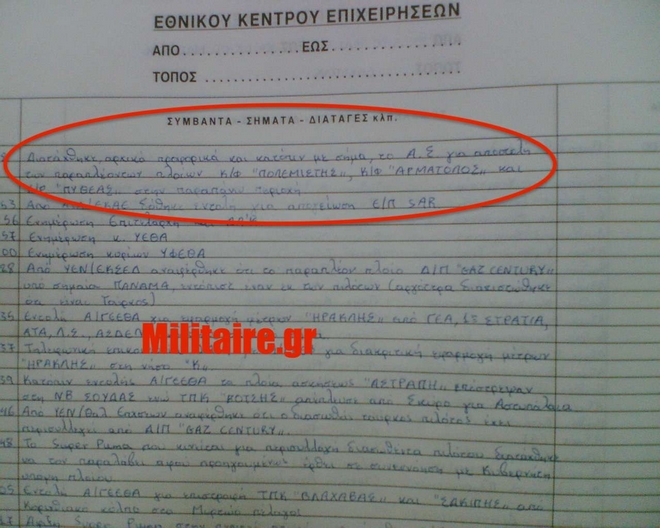 ΕΘΝΙΚΟΥ ΚΕΝΤΡΟΥ ΕΠΙΧΕΙΡΗΣΕΩΝ
ΑΠΟ.................ΕΩΣ....................
ΤΟΠΟΣ ......................................
ΣΥΜΒΑΝΤΑ - ΣΗΜΑΤΑ - ΔΙΑΤΑΓΕΣ κλπ.
Διατάχθηκε, αρχικά προφορικά και κατόπιν με σήμα, το Α.Σ για αποστολή
των παραπλεόντων πλοίων Κ/Φ "ΠΟΛΕΜΙΣΤΗΣ", Κ/Φ "ΑΡΜΑΤΟΛΟΣ" και
"ΠΥΘΕΑΣ" στην παραπάνω περιοχή
53 Από εντολή για απογείωση Ε/Π SAR
56 Ενημέρωση Επιτελάρχη
57 Ενημέρωση κ. ΥΕΘΑ
00 Ενημέρωση κυρίων ΥΦΕΘΑ
28 Από ΥΕΝ/ΕΚΣΕΔ αναφέρθηκε ότι το παραπλέον πλοίο Δ/Π "GAZ CENTURY"
υπό σημαία ΠΑΝΑΜΑ, εντόπισε έναν εκ των πιλότων (αργότερα διαπιστώθηκε
ότι είναι Τούρκος)
35 Εντολή Α/ΓΕΕΘΑ για εφαρμογή μέτρων "ΗΡΑΚΛΗΣ" από ΓΕΑ, ΣΤΡΑΤΙΑ,
ΑΤΑ, Α.Σ., ΑΣΔΕΝ
Militaire.gr
37 Τηλεφωνική για διακριτική εφαρμογή μέτρων
"ΗΡΑΚΛΗΣ" στη νήσο "Κ"
39 Κατόπιν εντολής Α/ΓΕΕΘΑ τα πλοία ασκήσεως "ΑΣΤΡΑΠΗ" επέστρεψαν
στη ΝΒ ΣΟΥΔΑΣ ενώ ΤΠΚ "ΒΟΤΣΗΣ" απέπλευσε από Σκύρο για Αστυπάλαια
46 Από ΥΕΝ/Θαλ Επ/σεων αναφέρθηκε ότι ο διασωθείς τούρκος πιλότος έχει
περισυλλεγεί από Δ/Π "GAZ CENTURY"
48 Το Super Puma που κινείται για περισυλλογή διασωθέντα πιλότου
να τον παραλάβει αφού προηγουμένως έρθει σε συνεννόηση με Κυβερνήτη
πλοίου
05 Εντολή Α/ΓΕΕΘΑ για επιστροφή ΤΠΚ "ΒΛΑΧΑΒΑΣ" και "ΣΑΚΙΠΗΣ" από
Κορινθιακό κόλπο στο Μυρτώο πέλαγος
Super Puma στην